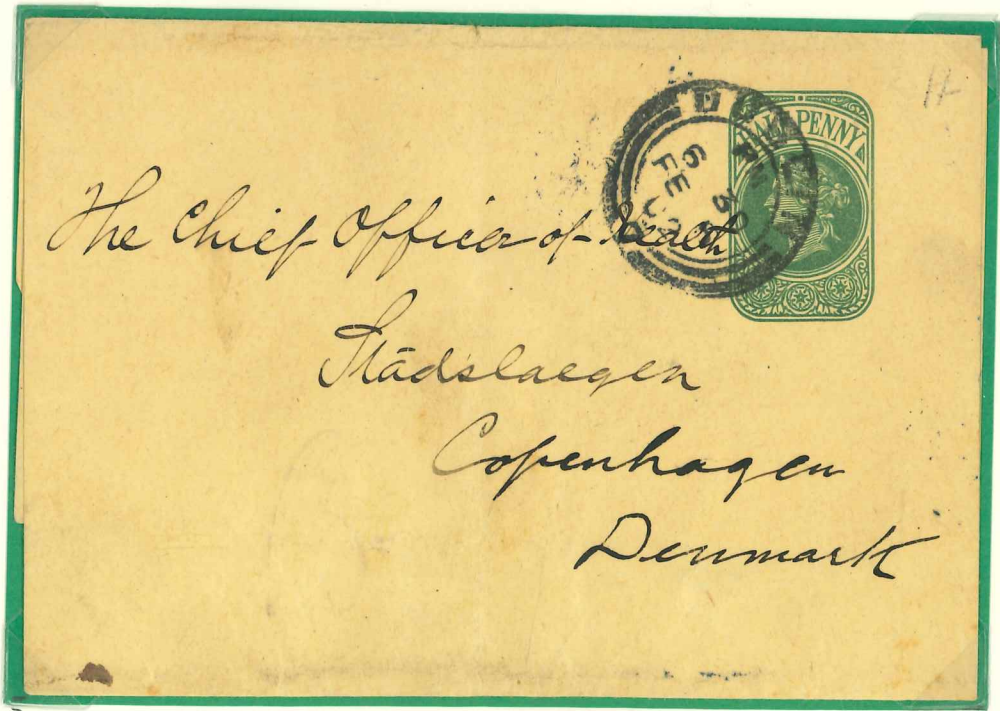 HALFPENNY
6 30
FE
The Chief Officer of Health
Stadslaegen
Copenhagen
Denmark
1/-